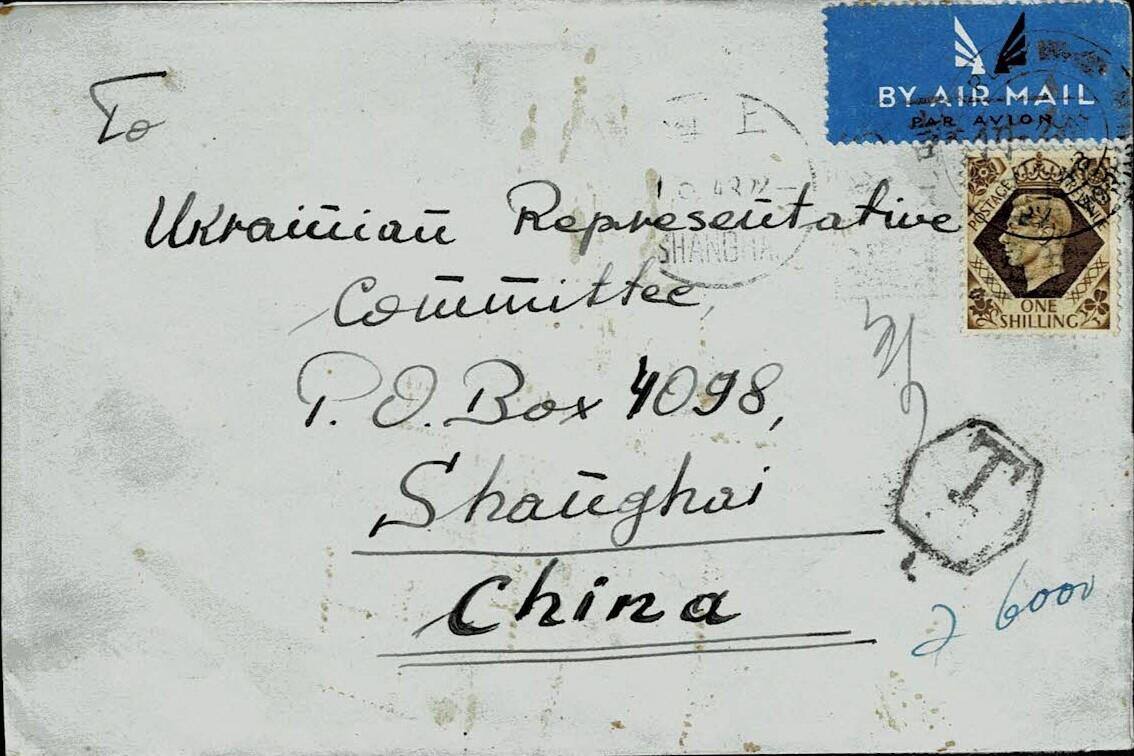 BY AIR MAIL
PAR AVION
To
Ukrainian Representative
Committee,
P.O. Box 4098,
Shanghai
China
POSTAGE
ONE
SHILLING
SHANGHAI
T
6000